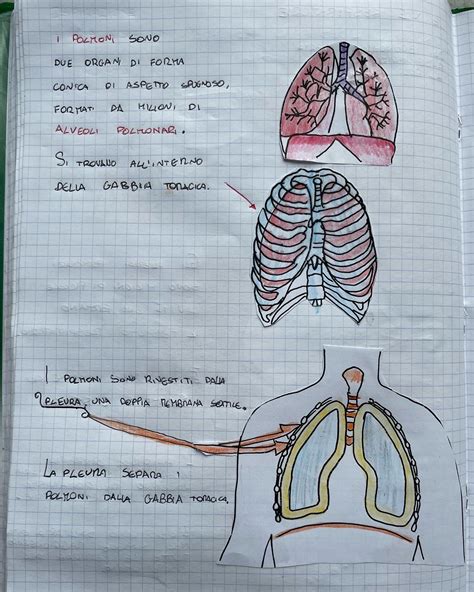 I POLMONI SONO
DUE ORGANI DI FORMA
CONICA DI ASPETTO SPUGNOSO,
FORMATI DA MILIONI DI
ALVEOLI POLMONARI.
SI TROVANO ALL'INTERNO
DELLA GABBIA TORACICA.
I POLMONI SONO RIVESTITI DALLA
PLEURA, UNA DOPPIA MEMBRANA SOTTILE.
LA PLEURA SEPARA I
POLMONI DALLA GABBIA TORACICA.